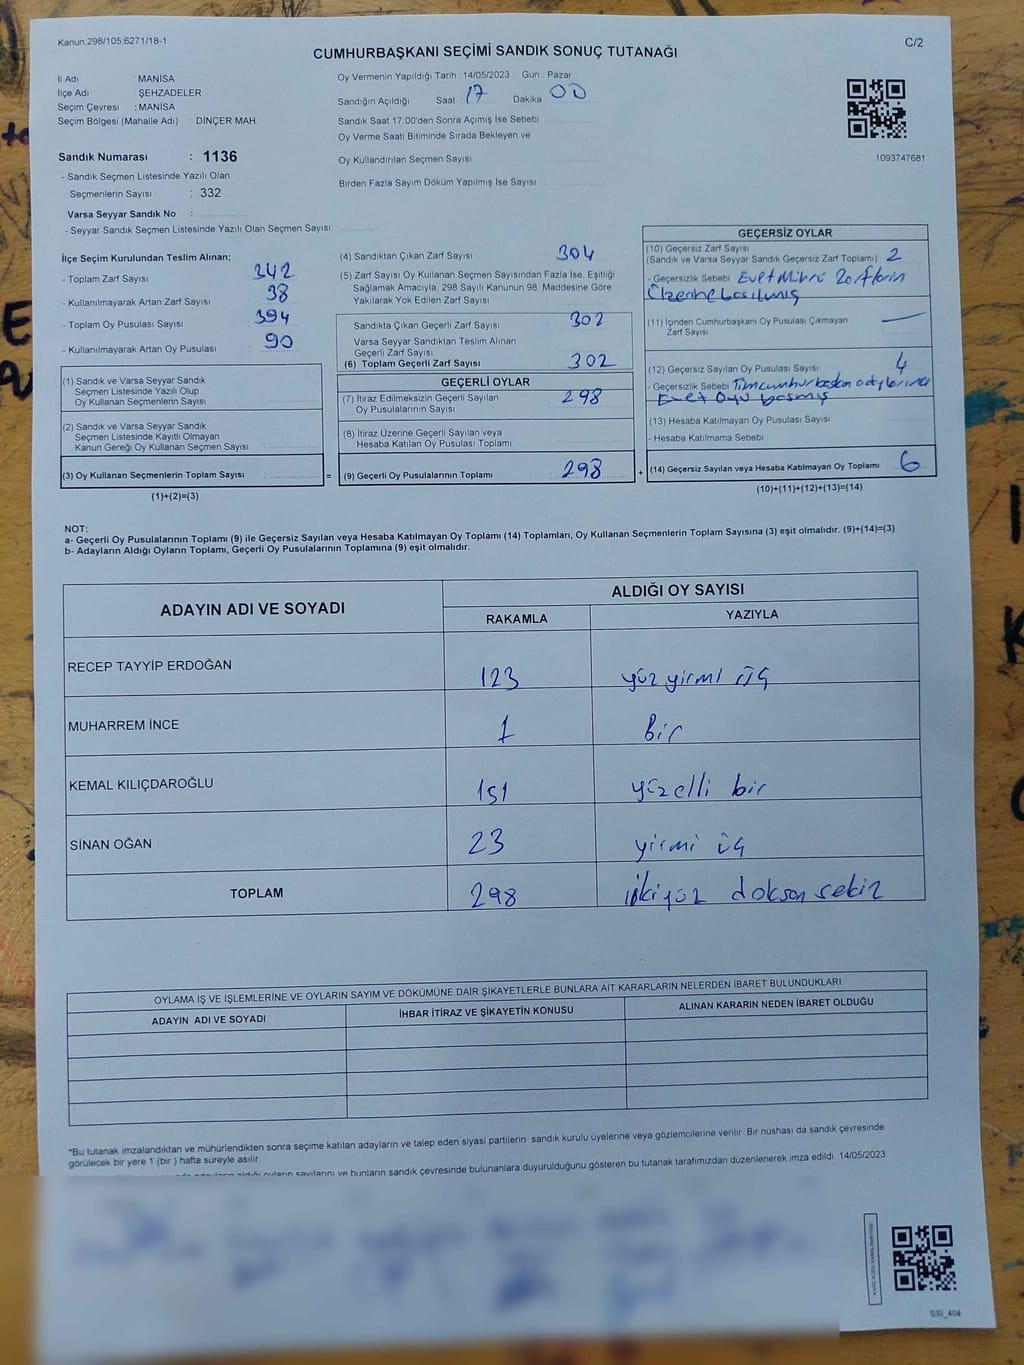 Kanun,298/105;6271/18-1
C/2
CUMHURBAŞKANI SEÇİMİ SANDIK SONUÇ TUTANAĞI
İl Adı MANİSA
İlçe Adı : ŞEHZADELER
Seçim Çevresi : MANİSA
Seçim Bölgesi (Mahalle Adı) DİNÇER MAH.
Sandık Numarası : 1136
- Sandık Seçmen Listesinde Yazılı Olan
Seçmenlerin Sayısı : 332
Varsa Seyyar Sandık No :
- Seyyar Sandık Seçmen Listesinde Yazılı Olan Seçmen Sayısı:
Oy Vermenin Yapıldığı Tarih : 14/05/2023 Gün Pazar
Sandığın Açıldığı Saat 17 Dakika 00
Sandık Saat 17:00'den Sonra Açımış İse Sebebi
Oy Verme Saati Bitiminde Sırada Bekleyen ve
Oy Kullandırılan Seçmen Sayısı
Birden Fazla Sayım Döküm Yapılmış İse Sayısı
1093747681
İlçe Seçim Kurulundan Teslim Alınan;
- Toplam Zarf Sayısı 342
- Kullanılmayarak Artan Zarf Sayısı 38
- Toplam Oy Pusulası Sayısı 394
- Kullanılmayarak Artan Oy Pusulası 90
(1) Sandık ve Varsa Seyyar Sandık
Seçmen Listesinde Yazılı Olup
Oy Kullanan Seçmenlerin Sayısı
(2) Sandık ve Varsa Seyyar Sandık
Seçmen Listesinde Kayıtlı Olmayan
Kanun Gereği Oy Kullanan Seçmen Sayısı
(3) Oy Kullanan Seçmenlerin Toplam Sayısı =
(1)+(2)=(3)
(4) Sandıktan Çıkan Zarf Sayısı 304
(5) Zarf Sayısı Oy Kullanan Seçmen Sayısından Fazla İse, Eşitliği
Sağlamak Amacıyla, 298 Sayılı Kanunun 98. Maddesine Göre
Yakılarak Yok Edilen Zarf Sayısı
Sandıkta Çıkan Geçerli Zarf Sayısı 302
Varsa Seyyar Sandıktan Teslim Alınan
Geçerli Zarf Sayısı
(6) Toplam Geçerli Zarf Sayısı 302
GEÇERLİ OYLAR
(7) İtiraz Edilmeksizin Geçerli Sayılan
Oy Pusulalarının Sayısı 298
(8) İtiraz Üzerine Geçerli Sayılan veya
Hesaba Katılan Oy Pusulası Toplamı
(9) Geçerli Oy Pusulalarının Toplamı 298 +
GEÇERSİZ OYLAR
(10) Geçersiz Zarf Sayısı
(Sandık ve Varsa Seyyar Sandık Geçersiz Zarf Toplamı) 2
- Geçersizlik Sebebi Evet Mührü Zarfların
Üzerine basılmış
(11) İçinden Cumhurbaşkanı Oy Pusulası Çıkmayan
Zarf Sayısı —
(12) Geçersiz Sayılan Oy Pusulası Sayısı 4
- Geçersizlik Sebebi Tüm cumhurbaşkan adaylarına
Evet Oyu basmış
(13) Hesaba Katılmayan Oy Pusulası Sayısı
- Hesaba Katılmama Sebebi
(14) Geçersiz Sayılan veya Hesaba Katılmayan Oy Toplamı 6
(10)+(11)+(12)+(13)=(14)
NOT:
a- Geçerli Oy Pusulalarının Toplamı (9) ile Geçersiz Sayılan veya Hesaba Katılmayan Oy Toplamı (14) Toplamları, Oy Kullanan Seçmenlerin Toplam Sayısına (3) eşit olmalıdır. (9)+(14)=(3)
b- Adayların Aldığı Oyların Toplamı, Geçerli Oy Pusulalarının Toplamına (9) eşit olmalıdır.
ADAYIN ADI VE SOYADI ALDIĞI OY SAYISI
RAKAMLA YAZIYLA
RECEP TAYYİP ERDOĞAN 123 yüz yirmi üç
MUHARREM İNCE 1 bir
KEMAL KILIÇDAROĞLU 151 yüzelli bir
SİNAN OĞAN 23 yirmi üç
TOPLAM 298 ikiyüz doksan sekiz
OYLAMA İŞ VE İŞLEMLERİNE VE OYLARIN SAYIM VE DÖKÜMÜNE DAİR ŞİKAYETLERLE BUNLARA AİT KARARLARIN NELERDEN İBARET BULUNDUKLARI
ADAYIN ADI VE SOYADI İHBAR İTİRAZ VE ŞİKAYETİN KONUSU ALINAN KARARIN NEDEN İBARET OLDUĞU
*Bu tutanak imzalandıktan ve mühürlendikten sonra seçime katılan adayların ve talep eden siyasi partilerin sandık kurulu üyelerine veya gözlemcilerine verilir. Bir nüshası da sandık çevresinde
görülecek bir yere 1 (bir ) hafta süreyle asılır.
aldığı oyların sayılarını ve bunların sandık çevresinde bulunanlara duyurulduğunu gösteren bu tutanak tarafımızdan düzenlenerek imza edildi. 14/05/2023